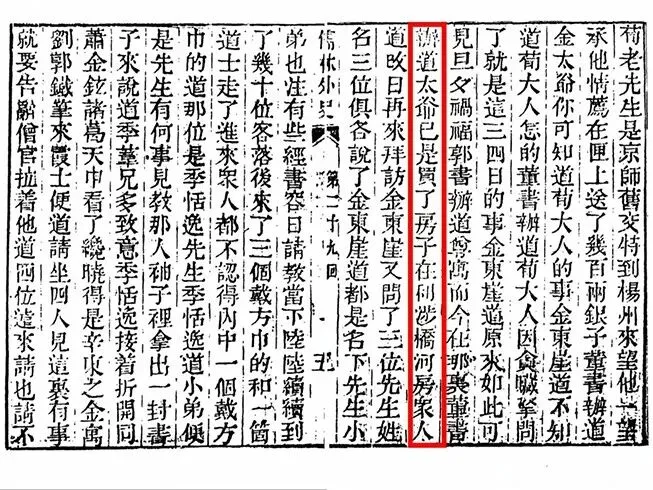 荀老先生是京師舊交特到楊州來望他一望
承他情薦在匣上送了幾百兩銀子董書辦道
金太爺你可知道荀大人的事金東崖道不知
道荀大人怎的董書辦道荀大人因貪贓拏問
了就是這三四日的事金東崖道原來如此可
見旦夕禍福郭書辦道尊寓而今在那裏董書
辦道太爺已是買了房子在利涉橋河房衆人
道改日再來拜訪金東崖又問了三位先生姓
名三位俱各說了金東崖道都是名下先生小
儒林外史 第二十九回 五
弟也注有些經書容日請教當下陸陸續續到
了幾十位客落後來了三個戴方巾的和一箇
道士走了進來衆人都不認得內中一個戴方
巾的道那位是季恬逸先生季恬逸道小弟便
是先生有何事見教那人袖子裏拿出一封書
子來說道季葦兄多致意季恬逸接着折開同
蕭金鉉諸葛天申看了纔曉得是辛東之金寓
劉郭鐵筆來霞士便道請坐四人見這裏有事
就要告辭僧官拉着他道四位遠來請也請不